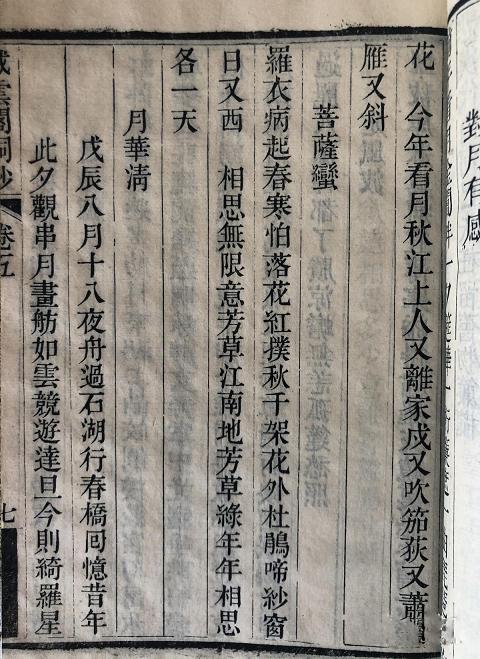 對月有感
花　今年看月秋江上人又離家戍又吹笳荻又蕭蕭
雁又斜
菩薩蠻
羅衣病起春寒怕落花紅撲秋千架花外杜鵑啼紗窗
日又西　相思無限意芳草江南地芳草綠年年相思
各一天
月華清
戊辰八月十八夜舟過石湖行春橋回憶昔年
此夕觀串月畫舫如雲競遊達旦今則綺羅星
雲閣詞鈔　卷五　七